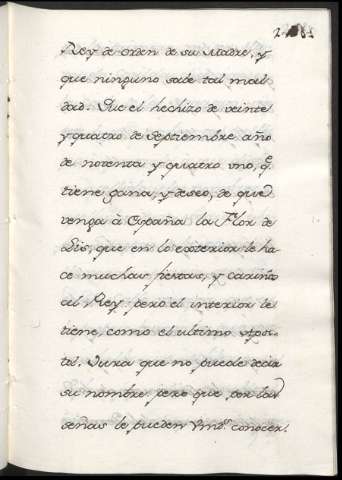 Rey de orden de su Madre, y
que ninguno sabe tal mal-
dad. Que el hechizo de veinte
y quatro de Septiembre año
de noventa y quatro vno, q̃
tiene gana, y deseo, de que
venga à España la Flor de
Lis, que en lo exterior le ha-
ce muchas fiestas, y cariño
al Rey: pero el interior le
tiene, como el ultimo Apos-
tol. Jura que no puede decir
su nombre, pero que por las
señas le pueden Vmds. conocer.